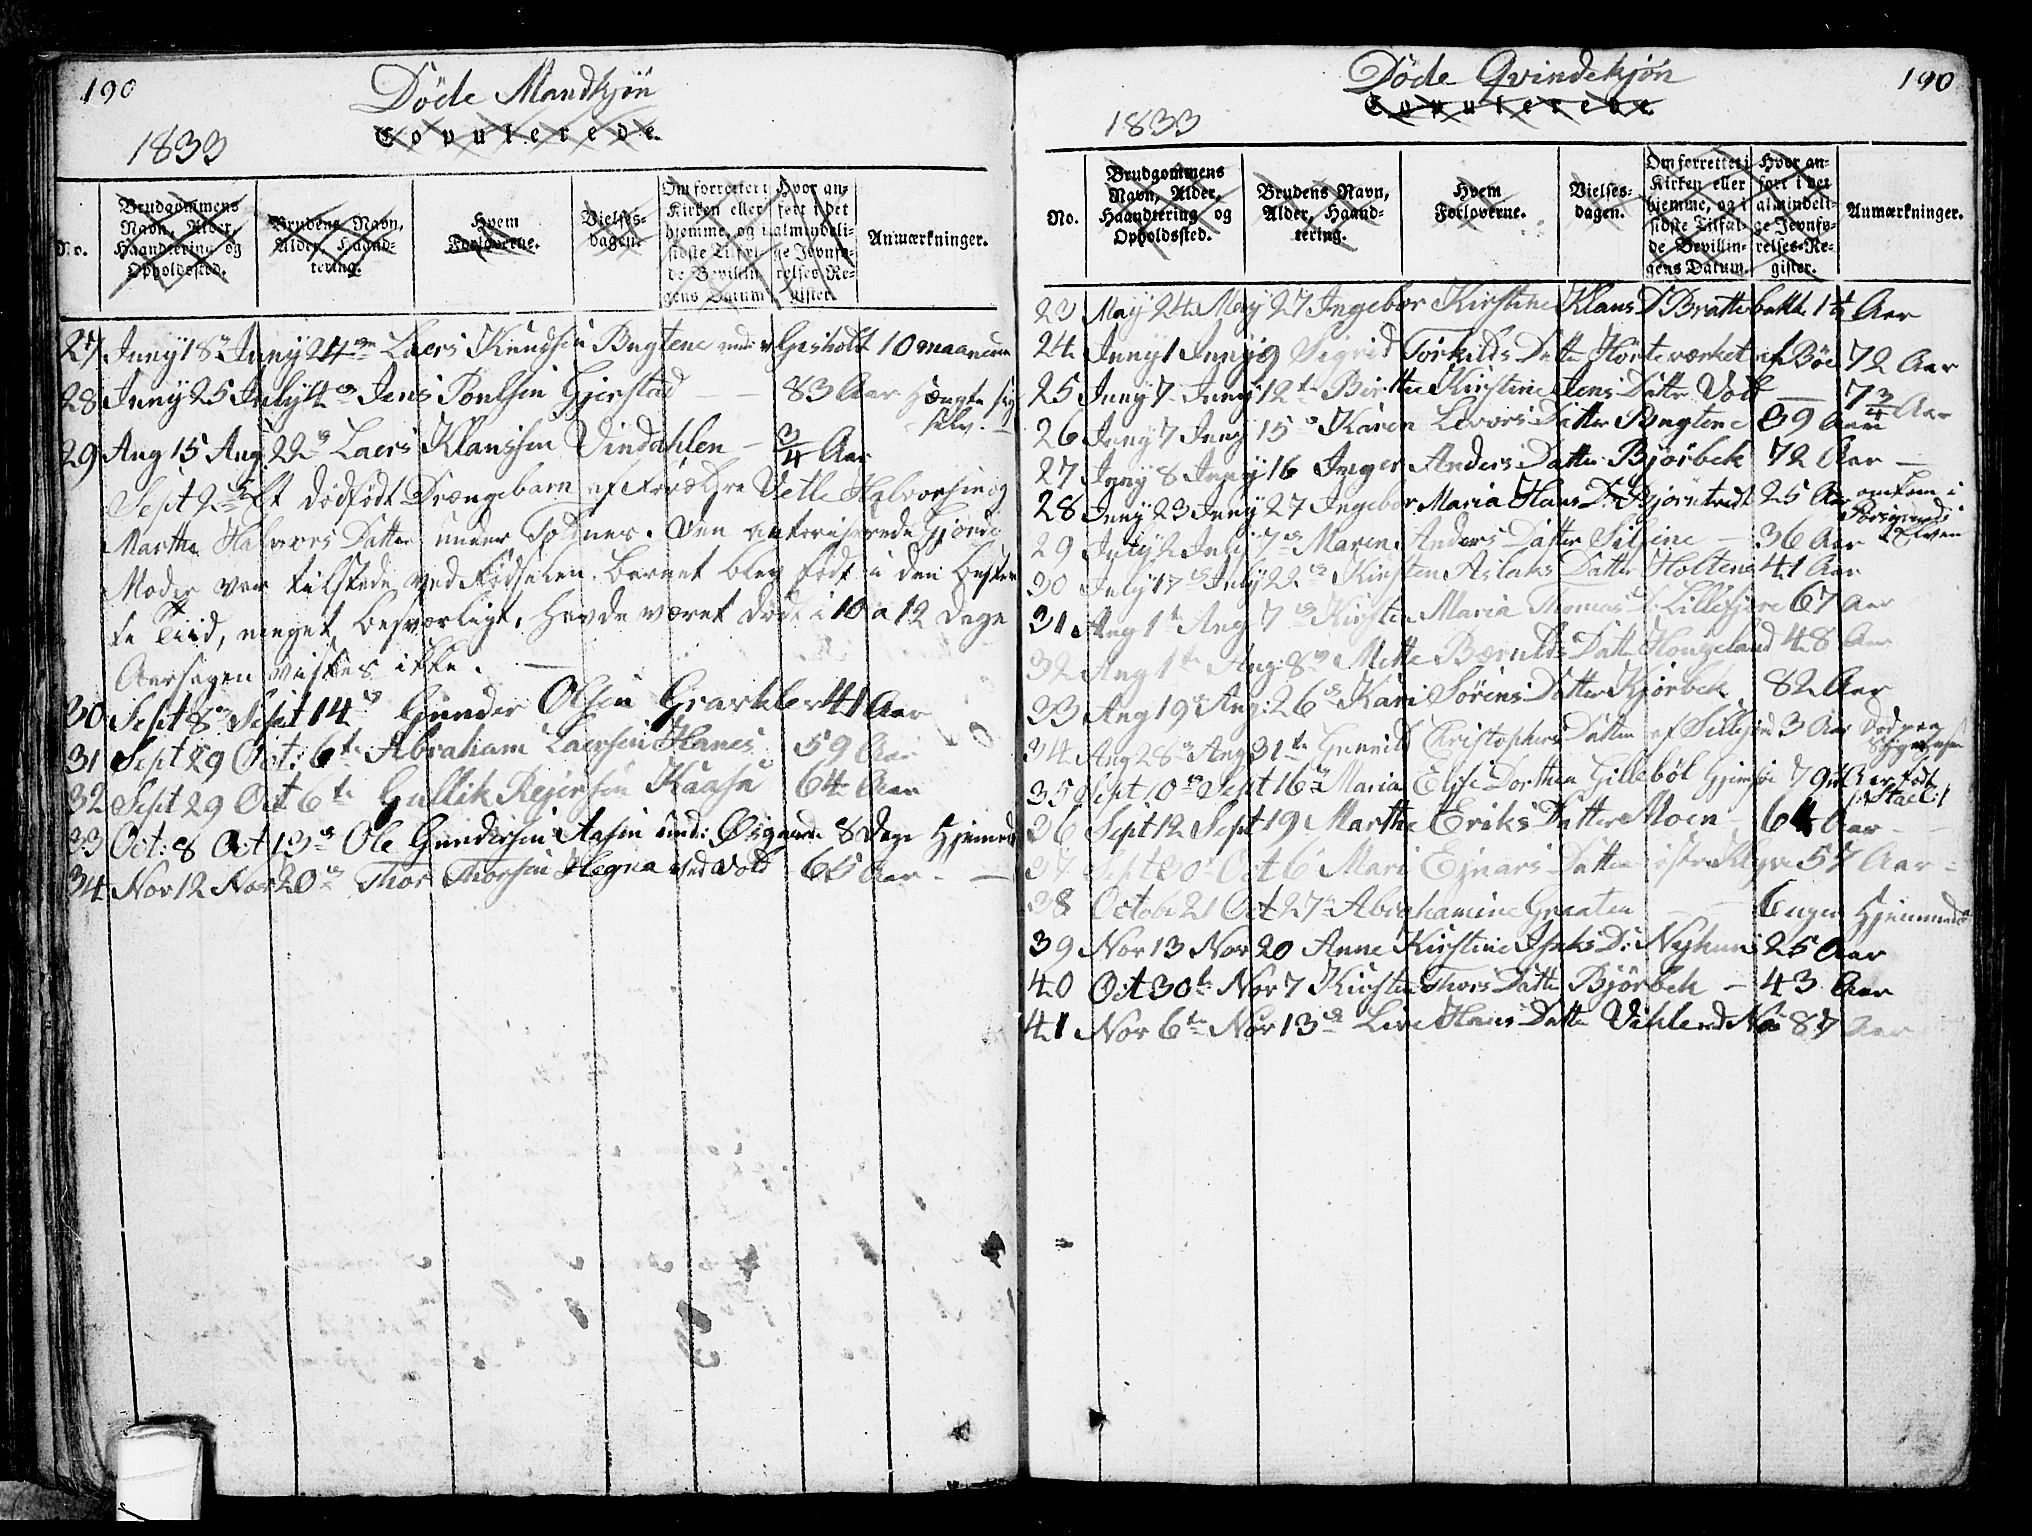 190
Döde Mandkjön
Copulerede.
1833
No.
Brudgommens Navn, Alder, Haandtering og Opholdssted.
Brudens Navn, Alder, Haandtering.
Hvem Forloverne.
Vielses-dagen.
Om forrettet i Kirken eller hjemme, og i sidste Tilfælde Bevillingens Datum.
Hvor anført i det almindelige Jevnførelses-Register.
Anmærkninger.
27 Juny 18 Juny 24 Laers Knudsen Bugtene under Gisholt 10 maaneder
28 Juny 25 July 4 Jens Poulsen Gjerstad — 83 Aar Hængte sig
selv. —
29 Aug 15 Aug. 22 Laers Klaussen Vindahlen — 3/4 Aar
Sept 2 Et dödfödt Drængebarn af Forældre Vetle Halvorsen og
Marthe Halvors Datter under Solnes. Den autoriserede Gjorde
Moder var tilstede ved Födselen. Barnet blev födt i den beste
te Tiid, meget besværligt, Havde været dödt i 10 a 12 Dage
Aarsagen vistes ikke. —
30 Sept 8 Sept 14 Gunder Olsen Graveklev 41 Aar
31 Sept 29 Oct: 6te Abraham Laersen Hanes 59 Aar
32 Sept 29 Oct 6te Gullik Rejersen Kaasa 64 Aar
33 Oct: 8 Oct 13 Ole Gundersen Aasen und: Øsgaarde 8 Dage Hjemmed
34 Nov 12 Nov 20 Thor Thorsen Hegna ved Vold 60 Aar. —
190
Döde Qvindekjön
Copulerede.
1833
No.
Brudgommens Navn, Alder, Haandtering og Opholdssted.
Brudens Navn, Alder, Haandtering.
Hvem Forloverne.
Vielses-dagen.
Om forrettet i Kirken eller hjemme, og i sidste Tilfælde Bevillingens Datum.
Hvor anført i det almindelige Jevnførelses-Register.
Anmærkninger.
23 May 24 May 27 Ingebor Kirstine Klaus D Brattebakke 1 1/2 Aar
24 Juny 1 Juny 9 Sigrid Torkilds Datter Horteværket af Böe 72 Aar
25 Juny 7 Juny 12te Birthe Kirstine Jens Datter Vold — 7 3/4 Aar
26 Juny 7 Juny 15 Karen Levors Datter Bugtene 89 Aar
27 Juny 8 Juny 16 Inger Anders Datter Bjørbek 72 Aar —
28 Juny 23 Juny 27 Ingebor Maria Hans D: Bjørntvedt 25 Aar omkom i
Porsgrunds
Elven
29 July 2 July 7 Maren Anders Datter — 36 Aar
30 July 17 July 22 Kirsten Aslaks Datter Holtene 41 Aar
31 Aug 1te Aug 7 Kirsten Maria Thomas D: Lillesjøre 67 Aar
32 Aug 1te Aug: 8 Mette Bærnilds Datter Hougeland 48 Aar
33 Aug 19 Aug: 26 Kari Sörens Datter Kjörbek 82 Aar
34 Aug 28 Aug 31te Gunnild Christophers Datter af 3 Aar
35 Sept 10 Sept 16 Maria Elise Dorthea Gilleböl Gjemsöe 79 Aar födt
36 Sept 12 Sept 19 Marthe Eriks Datter Moen 64 Aar —
37 Sept 30 Oct 6 Mari Ejnars Datter östre Klyve 57 Aar —
38 October 21 Oct 27 Abrahamine Graaten — 6 uger Hjemmed
39 Nov 13 Nov 20 Anne Kirstine Isaks D: Nyhuus 25 Aar
40 Oct 30te Nov 7 Kirsten Thors Datter Bjørbek — 43 Aar
41 Nov 6te Nov 13 Live Hans Datter 87 Aar